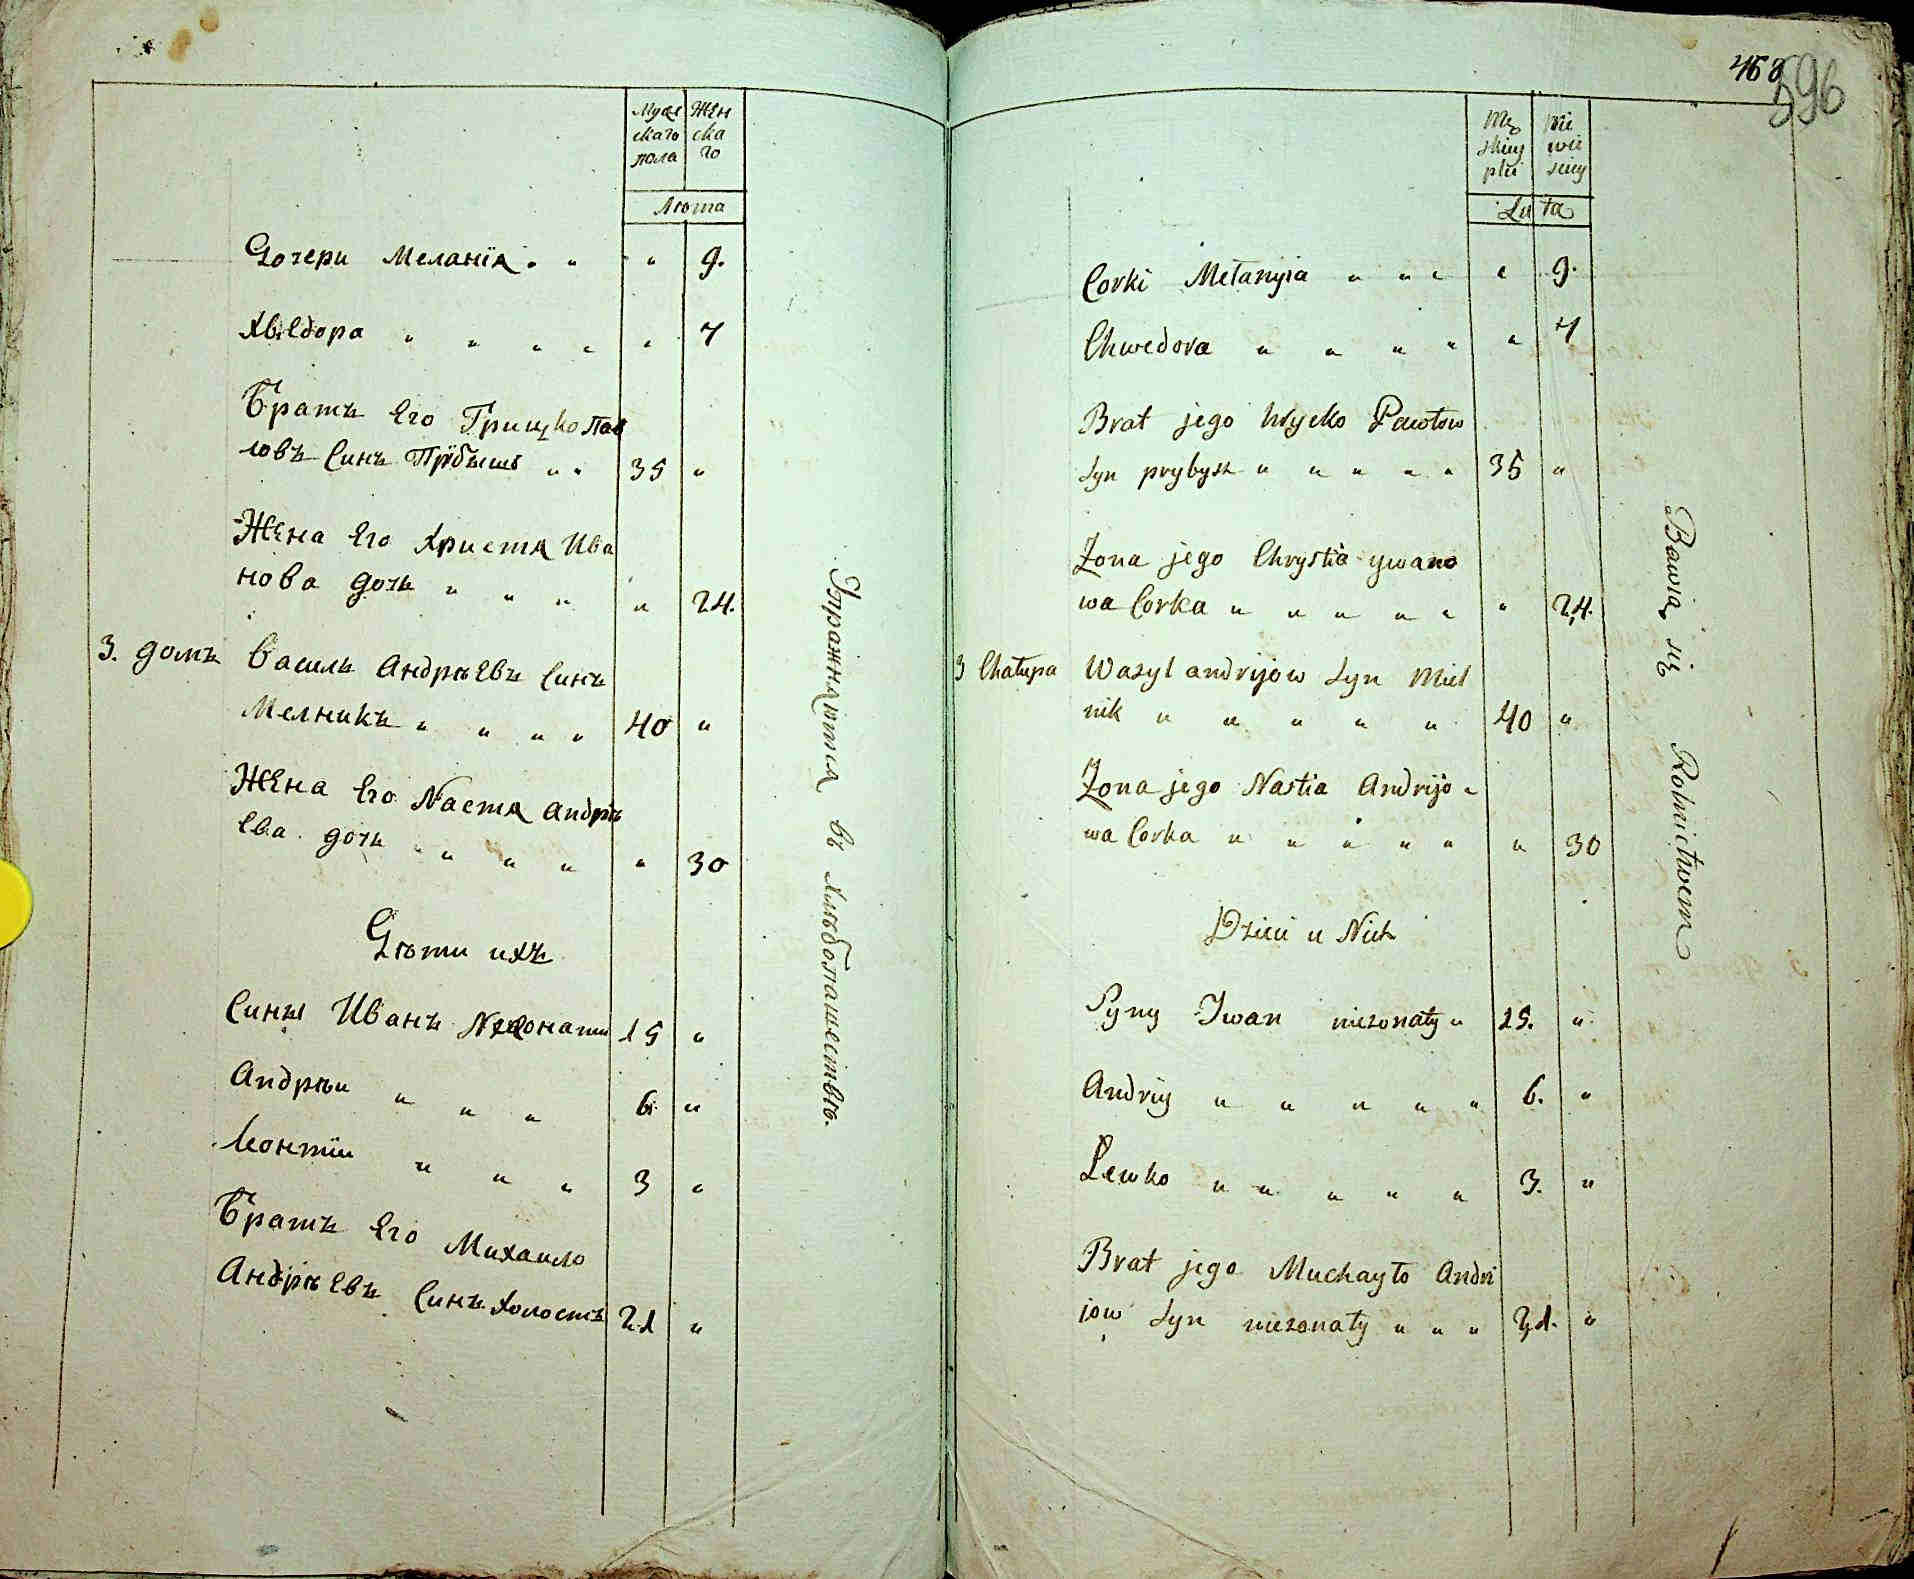 Мужескаго пола
Женскаго
Лѣта
Дочери Меланїя " " " 9.
Хведора " " " " " 7
Братъ Его Грицко Пав
ловъ Синъ Прїбышъ " " 35 "
Жена Его Христя Ива
нова дочь " " " " 24.
3. домъ Василь Андрѣевъ Синъ
Мелникъ " " " " 40 "
Жена Его Настя Андрѣ
ева дочь " " " " 30
Дѣти ихъ
Сины Иванъ Нежонати 15 "
Андрѣи " " " 6. "
Леонтїи " " " 3 "
Братъ Его Михаило
Андрѣевъ Синъ Холостъ 21 "
Упражняются въ хлѣбопашествѣ.
596
Męskiey płci
Lata
Corki Mełanyia " " " " 9.
Chwedora " " " " " 7
Brat jego Hrycko Pawłow
Syn prybysz " " " " " 35 "
Zona jego Chrystia ywano
wa Corka " " " " " " 24.
3 Chałupa Wasyl andrijow Syn Miel
nik " " " " " 40 "
Zona jego Nastia Andrijo
wa Corka " " " " " " 30
Dzieci u Nich
Syny Iwan niezonaty " 15. "
Andriy " " " " " 6. "
Lewko " " " " " 3. "
Brat jego Muchayło Andri
jow Syn niezonaty " " " 21. "
Bawią się Rolnictwem